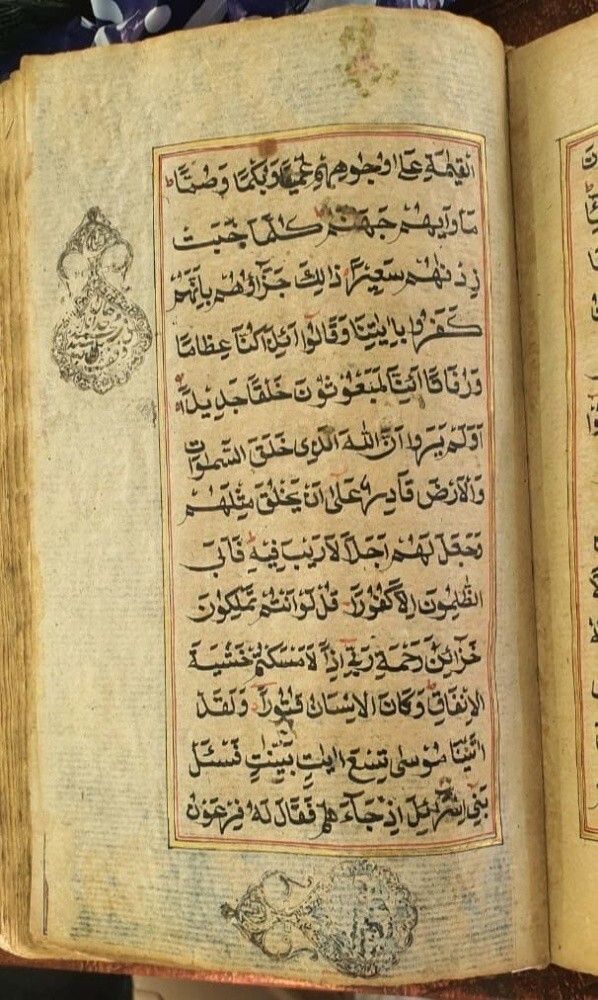 الْقِيٰمَةِ عَلٰى وُجُوهِهِمْ عُمْيًا وَبُكْمًا وَصُمًّا ط
مَأْوٰيهُمْ جَهَنَّمُ كُلَّمَا خَبَتْ
زِدْنٰهُمْ سَعِيْرًا ذٰلِكَ جَزَآؤُهُمْ بِاَنَّهُمْ
كَفَرُوا بِاٰيٰتِنَا وَقَالُوْا ءَاِذَا كُنَّا عِظَامًا
وَرُفَاتًا ائِنَّا لَمَبْعُوْثُوْنَ خَلْقًا جَدِيْدًا
اَوَلَمْ يَرَوْا اَنَّ اللّٰهَ الَّذِى خَلَقَ السَّمٰوَاتِ
وَالْاَرْضَ قَادِرٌ عَلٰى اَنْ يَخْلُقَ مِثْلَهُمْ
وَجَعَلَ لَهُمْ اَجَلًا لَارَيْبَ فِيْهِ فَاَبَى
الظّٰلِمُوْنَ اِلَّا كُفُوْرًا قُلْ لَوْ اَنْتُمْ تَمْلِكُوْنَ
خَزَآئِنَ رَحْمَةِ رَبِّى اِذًا لَاَمْسَكْتُمْ خَشْيَةَ
الْاِنْفَاقِ ط وَكَانَ الْاِنْسَانُ قَتُوْرًا وَلَقَدْ
اٰتَيْنَا مُوْسٰى تِسْعَ اٰيٰتٍ بَيِّنٰتٍ فَسْئَلْ
بَنِى اِسْرَآئِلَ اِذْ جَآءَ هُمْ فَقَالَ لَهُ فِرْعَوْنُ